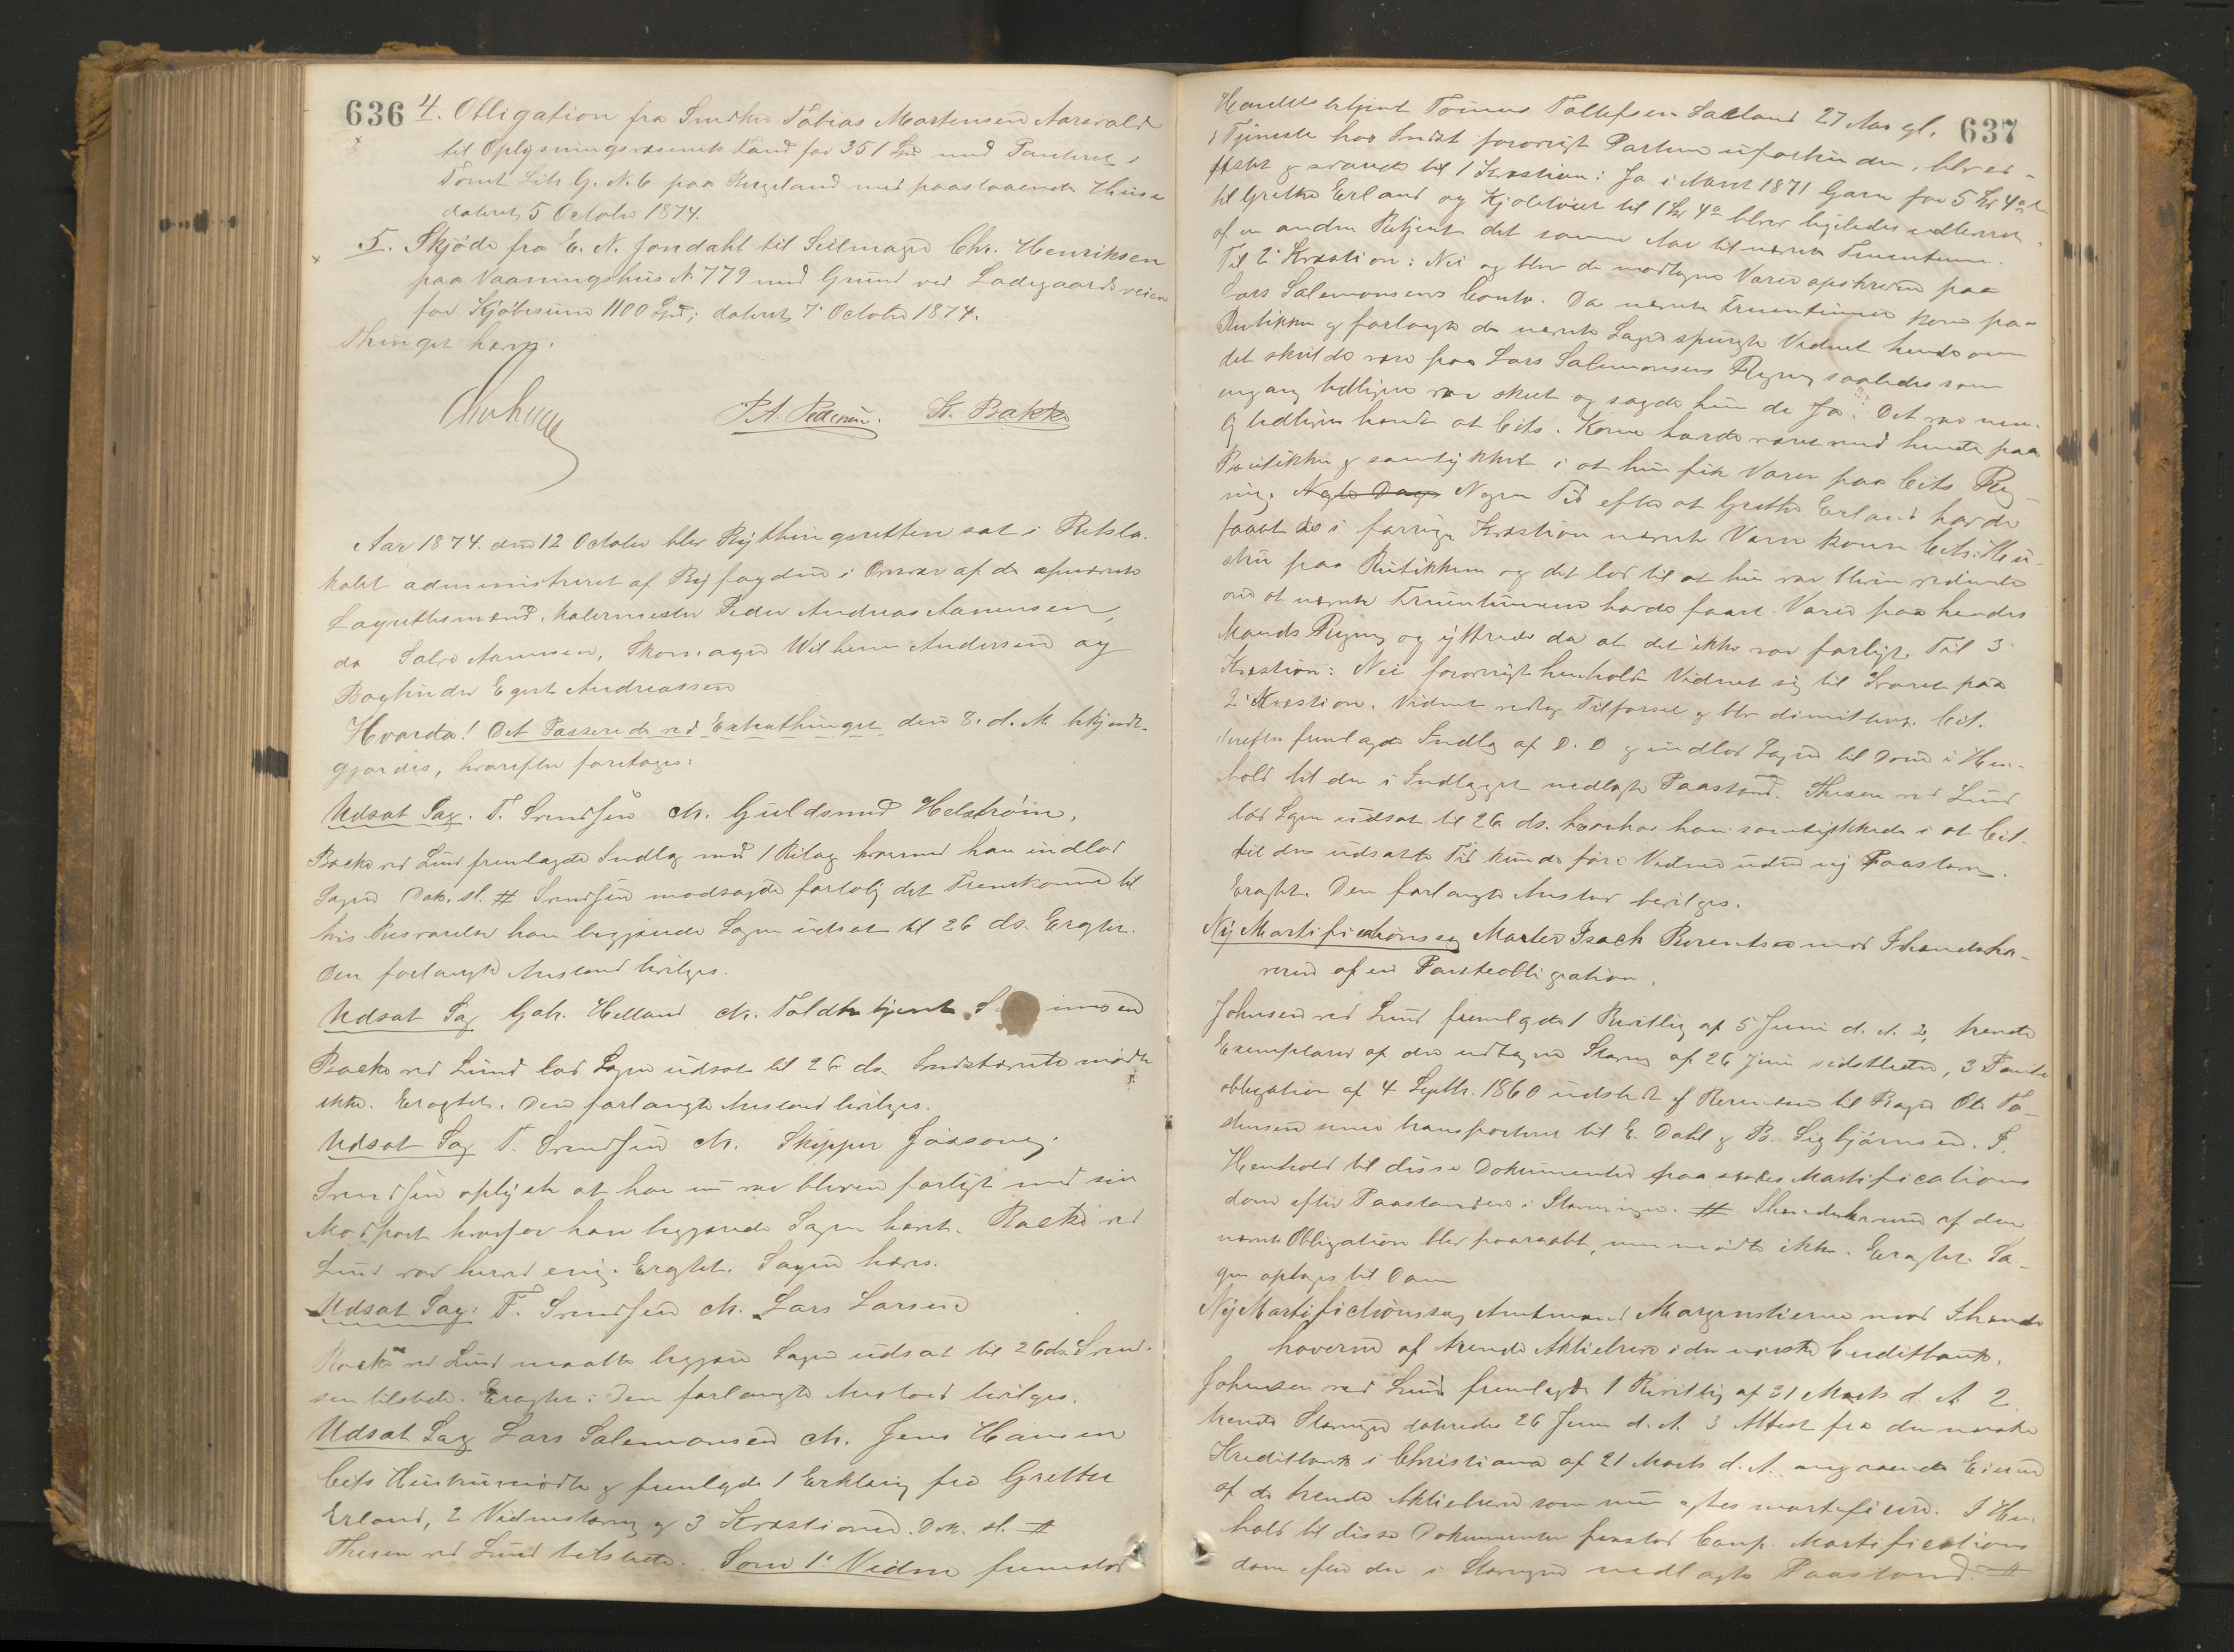 636 4. Obligation fra Snedker Tobias Mortensen Aarsvold
til Oplysningsvæsenets Fond for 351 Spd med Panteret i
Tomt Litr G. N. 6 paa Rugeland med paastaaende Huse
dateret 5 October 1874.
5. Skjöde fra E. N. Jondahl til Seilmager Chr. Henriksen
paa Vaaningshus N 779 med Grund ved Ladegaardsveien
for Kjöbesum 1100 Spd; dateret 7 October 1874.
Thinget hævet.
P. A. Pedersen. St. Bakke
Aar 1874. den 12 October blev Bythingsretten sat i Retslo-
kalet administreret af Byfogden i Overvær af de opnævnte
Lagrettesmænd, Malermester Peder Andreas Aanensen,
do Salve Aanensen, Skomager Wilhelm Andersen og
Bogbinder Egert Andreassen
Hvorda! Det Passerede ved Extrathinget den 8. d. M. bekjendt-
gjordes, hvorefter foretoges:
Udsat Sag. T. Svendsen ctr. Guldsmed Helström,
Backe ved Lund fremlagde Indlæg med 1 Bilag hvormed han indlod
Sagen Dok. sl. # Svendsen modsagde forlølig det Fremkomne til
hvis Besvarelse han begjærede Sagen udsat til 26 ds. Eragtet.
Den forlangte Anstand bevilges.
Udsat Sag Gab. Helland ctr. Toldbetjent S
Backe ved Lund lod Sagen udsat til 26 ds. Indstævnte mødte
ikke. Eragtet. Den forlangte Anstand bevilges.
Udsat Sag T. Svendsen ctr. Skipper Jassony.
Svendsen oplyste at han nu var bleven forligt med sin
Modpart hvorfor han begjærede Sagen hævet. Backe ved
Lund var herved enig. Eragtet. Sagen hæves.
Udsat Sag: T. Svendsen ctr. Lars Larsen
Backe ved Lund maatte begjære Sagen udsat til 26 ds. Svend-
sen tilstede. Eragtet: Den forlangte Anstand bevilges.
Udsat Sag Lars Salemonsen ctr. Jens Hansen
Cits Hustru mødte & fremlagde 1 Erklæring fra Grethe
Erland, 2 Vidnestævning & 3 Kvæstioner. Dok. sl. #
Thesen ved Lund tilstede. Som 1' Vidne fremstod
637
Handelsbetjent Tönnes Tallefsen Salland 27 Aar gl.
i Tjeneste hos Indst forovrigt Parterne uforbunden, blev ed-
fæstet & svarede til 1 Kvæstion: Ja i Marts 1871 Garn for 5 Kr 4
til Grethe Erland og Kjoletöier til 1 Kr 4 blev ligeledes udleveret
af en anden Betjent det samme Aar til nævnte Fruentimmer.
Til 2' Kvæstion: Nei og blev de modtagne Varer opskreven paa
Lars Salemonsens Conto. Da nævnte Fruentimmer kom paa
Butikken & forlangte de nævnte Sager spurgte Vidnet hende om
det skulde være paa Lars Salemonsens Regning saaledes som
engang tidligere var skeet og sagde hun da Ja. Det var nem-
lig tidligere hændt at Cits. Kone havde været med hende paa
Boutikken & samtykket i at hun fik Varer paa Cits Reg-
ning. Nogle Dage Nogen Tid efter at Grethe Erland havde
faaet de i forrige Kvæstion nævnte Varer kom Cits. Hu-
stru paa Butikken og det lod til at hun var bleven vidende
om at nævnte Fruentimmer havde faaet Varer paa hendes
Mands Regning og yttrede da at det ikke var farligt. Til 3'
Kvæstion: Nei forovrigt henholdt Vidnet sig til Svaret paa
2' Kvæstion. Vidnet vedtog Tilførsel & blev dimitteret. Cit.
derefter fremlagde Indlæg af D. D & indlod Sagen til Dom i Hen-
hold til den i Indlægget nedlagte Paastand. Thesen ved Lund
lod Sagen udsat til 26 ds. hvorhos han samtykkede i at Cit.
til den udsatte Tid kunde føre Vidner uden ny Paastævn.
Eragtet. Den forlangte Anstand bevilges.
Ny Mortificationssag Master Isach Berentsen mod Ihændeha-
veren af en Panteobligation.
Johnsen ved Lund fremlagde 1 Bevilling af 5 Juni d. A. 2, trende
Exemplarer af den udtagne Stævning af 26 Juni sidstleden, 3 Pante
obligation af 4 Septbr. 1860 udstedt af Berentsen til Bager Ole To-
stensen senere transporteret til E. Dahl & B. Sigbjörnsen. I
Henhold til disse Dokumenter paastodes Mortifications
dom efter Paastanden i Stævningen. # Ihændehaveren af den
nævnte Obligation blev paaraabt, men mødte ikke. Eragtet. Sa-
gen optages til Dom
Ny Mortifictionssag Amtmand Morgenstierne mod Ihænde
haveren af trende Aktiebreve i den norske Creditbank.
Johnsen ved Lund fremlagde 1 Bevilling af 31 Marts d. A. 2
trende Stævninger daterede 26 Juni d. A. 3 Attest fra den norske
Kreditbank i Christiania af 21 Marts d. A. angaaende Eieren
af de trende Aktiebreve som nu agtes mortificeret. I Hen-
hold til disse Dokumenter paastod Comp. Mortifications
dom efter den i Stævningen nedlagte Paastand. #